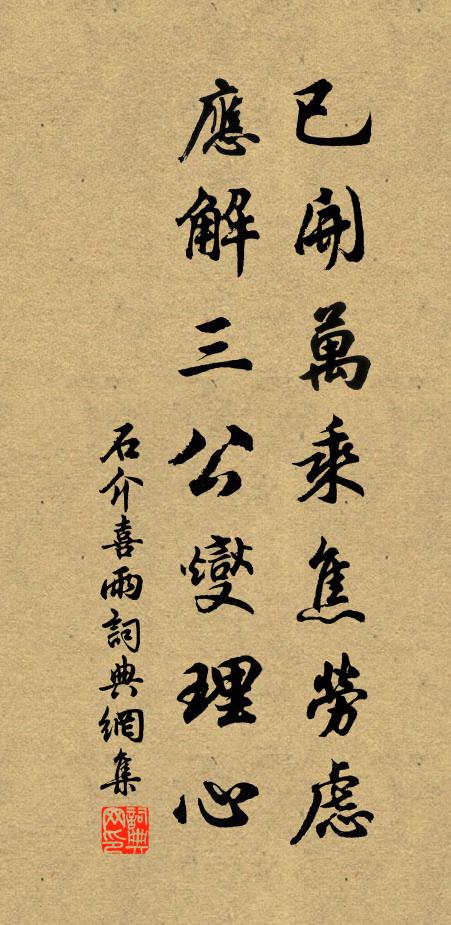 已開萬乘焦勞慮
應解三公燮理心
石介喜雨詞典網集
詞典網印